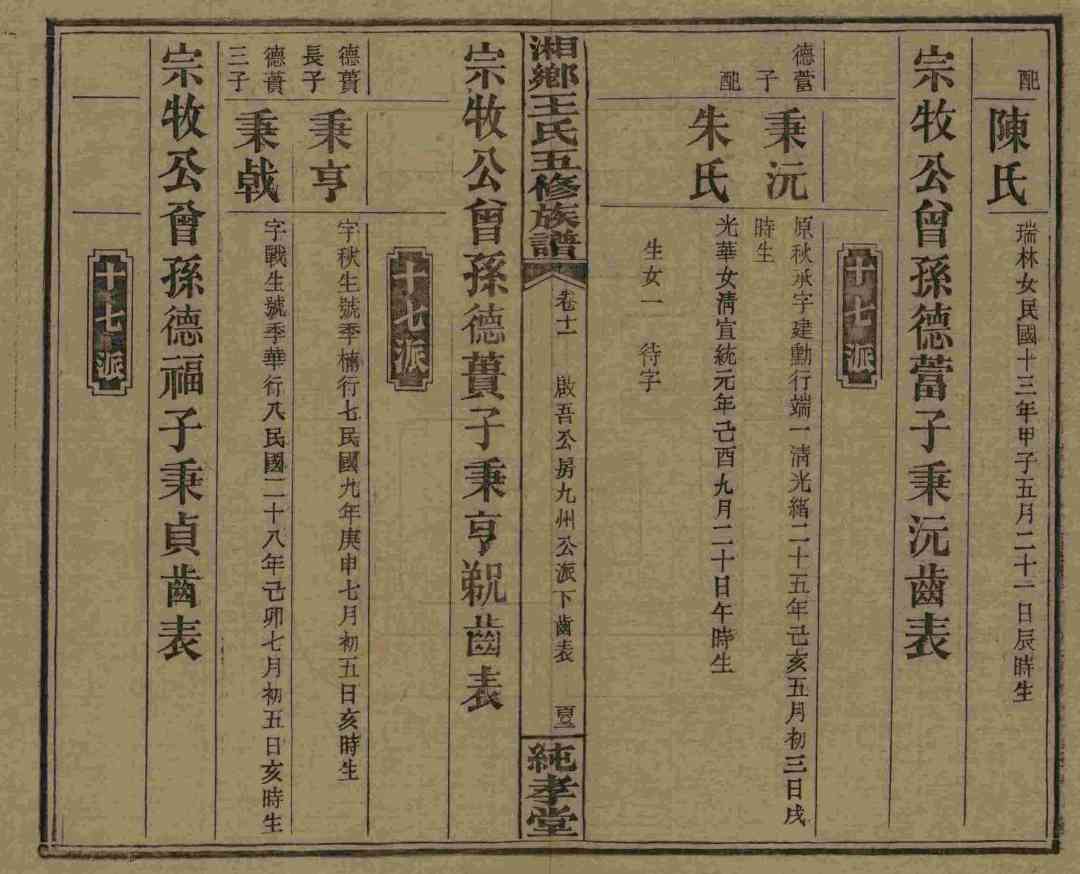 配
陳氏
瑞林女民國十三年甲子五月二十一日辰時生
宗牧公曾孫德蓸子秉沅齒表
十七派
德蓸子
秉沅
原秋承字建勳行端一清光緒二十五年己亥五月初三日戌
時生
配
朱氏
光華女清宣統元年己酉九月二十日午時生
生女一 待字
湘鄉王氏五修族譜
卷十一 啟吾公房九州公派下齒表
純孝堂
宗牧公曾孫德蕢子秉亨 齒表
十七派
德蕢
長子
秉亨
字秋生號季楠行七民國九年庚申七月初五日亥時生
德蕢
三子
秉戟
字戰生號季華行八民國二十八年己卯七月初五日亥時生
宗牧公曾孫德福子秉貞齒表
十七派